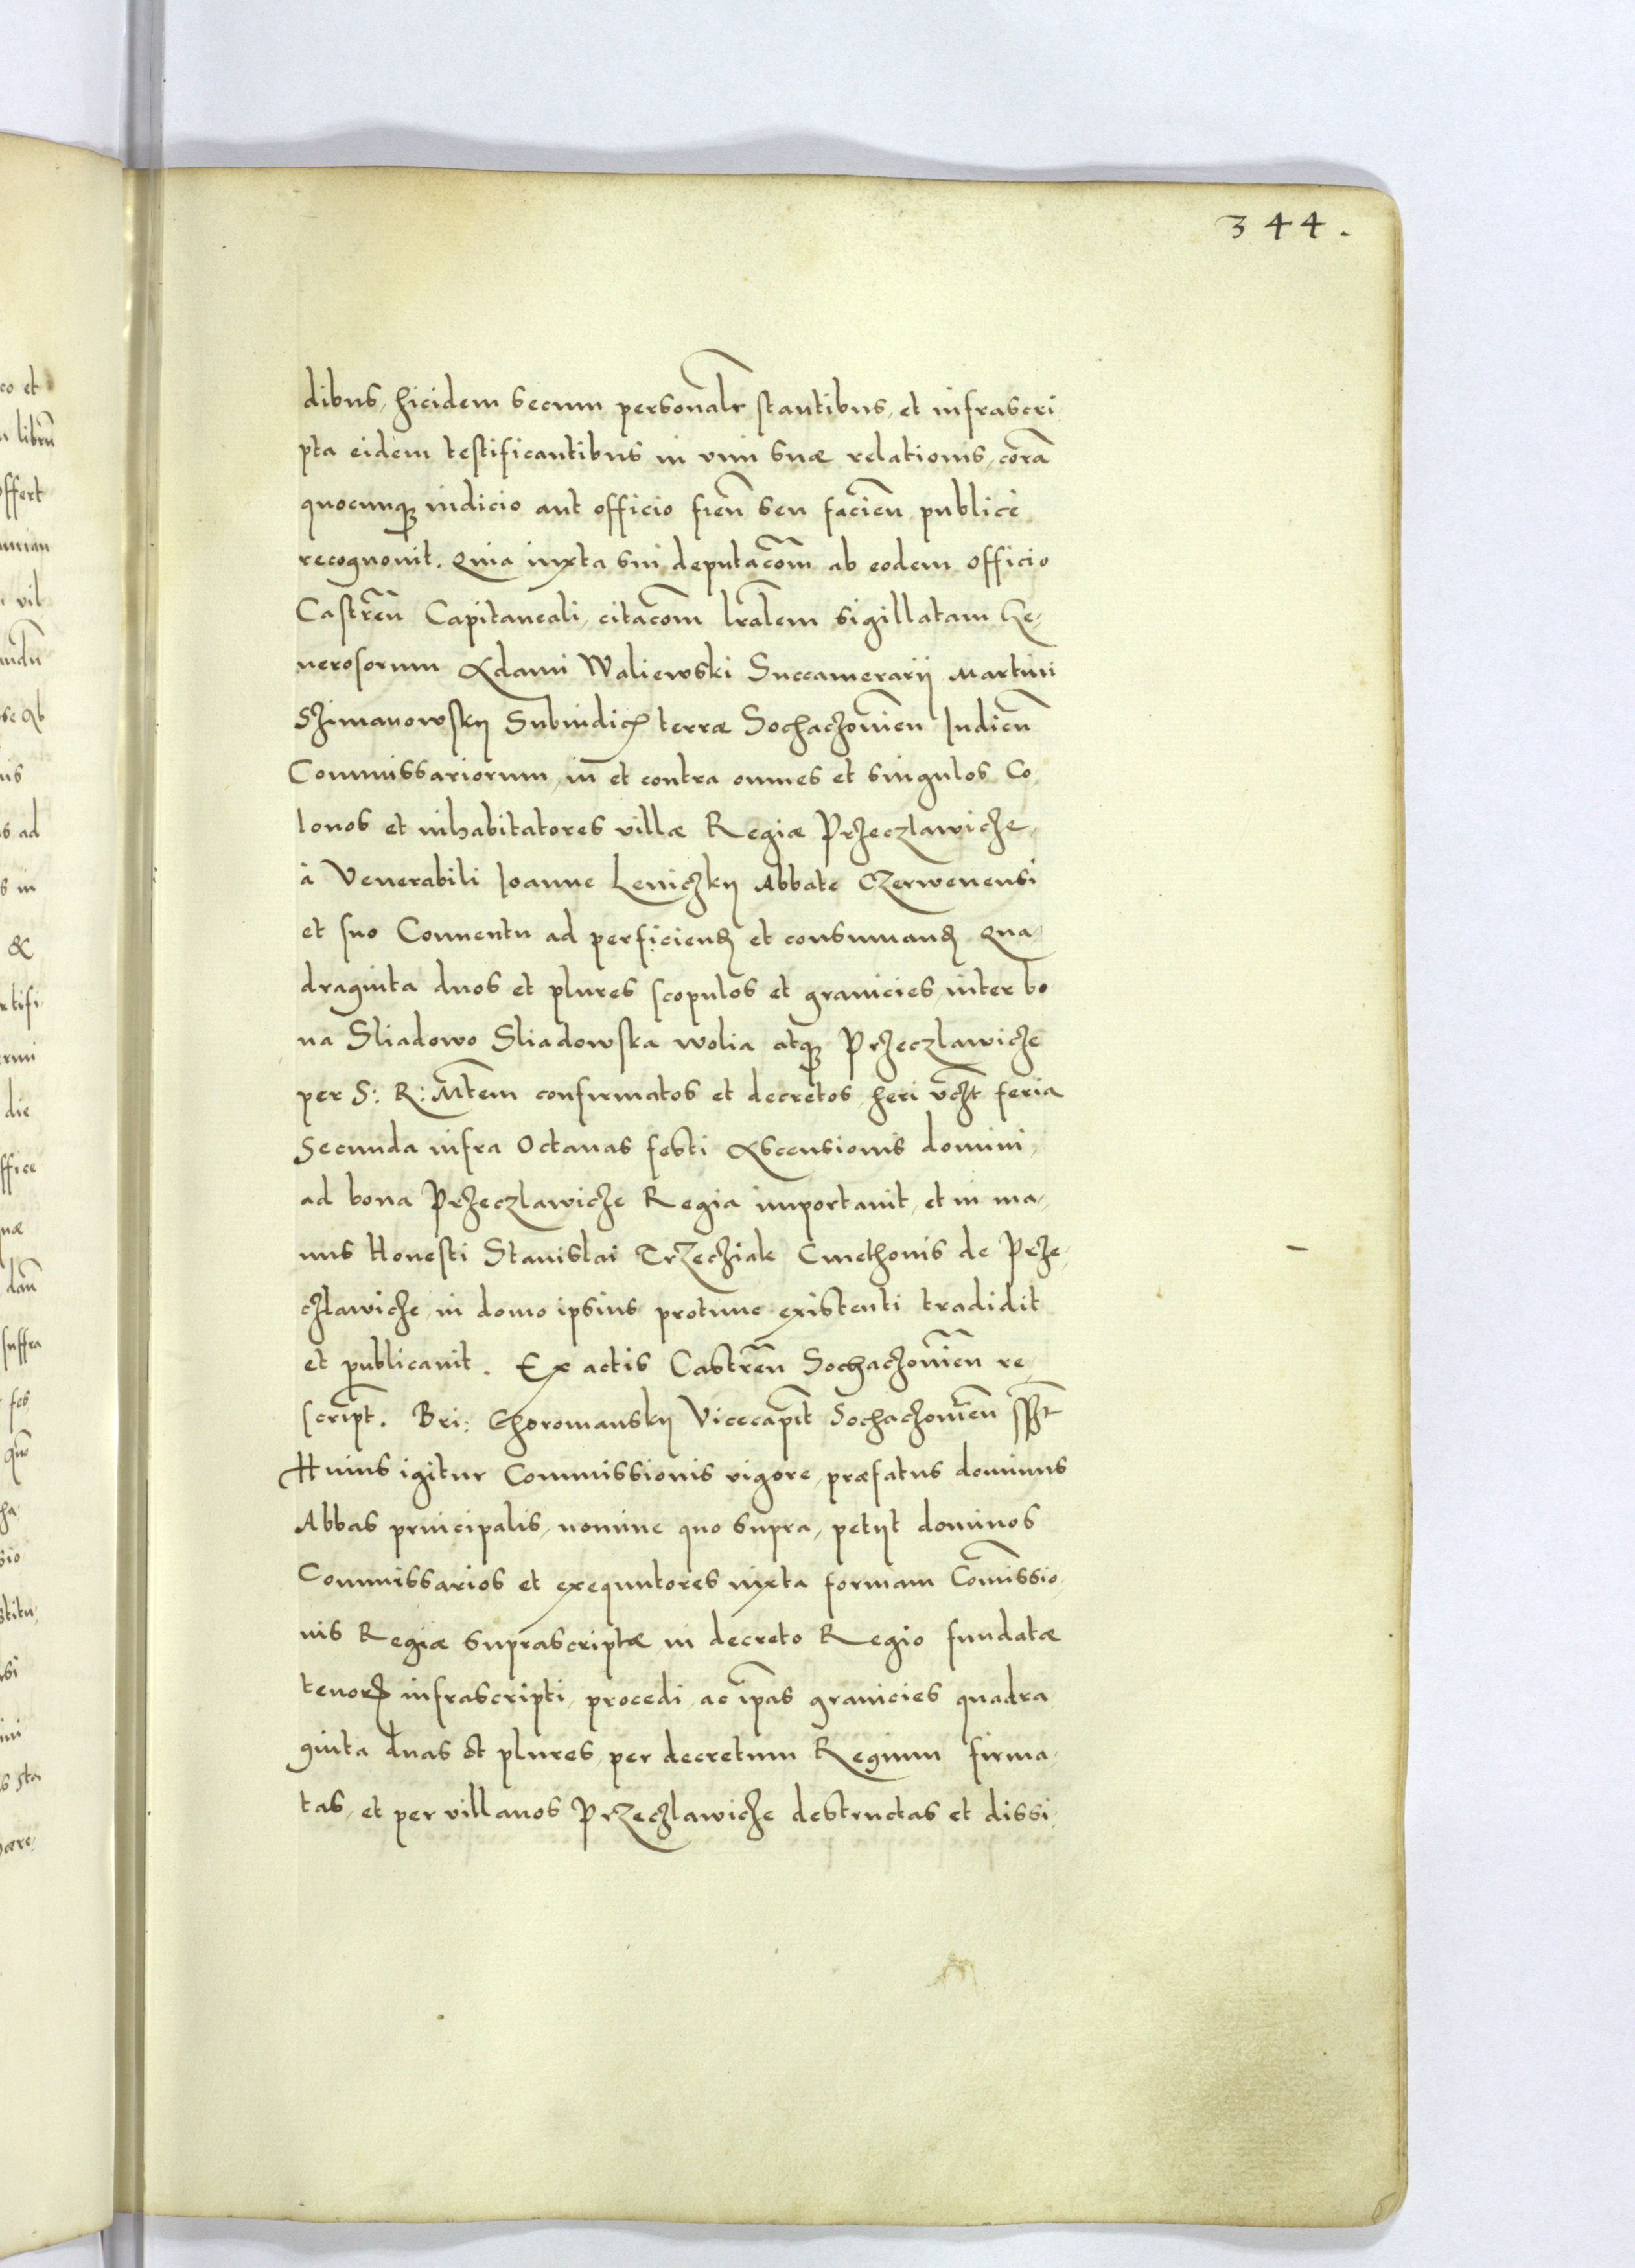 344.
dibus, hicidem secum personalr stantibus, et infrascri
pta eidem testificantibus in vim suæ relationis, cora
quocunq; iudicio aut officio fien seu facien publice
recognouit. Quia iuxta sui deputacom ab eodem officio
Castren Capitaneali, citacom lralem sigillatam Ge-
nerosorum Adami Waliewski Succamerarii Martini
Szimanowskij Subiudicis terræ Sochaczouien Iudicu
Commissariorum, in et contra omnes et singulos Co
lonos et inhabitatores villæ Regiæ Przeczlawicze,
à Venerabili Ioanne Leniczkij Abbate Czerwenensi
et suo Conuentu ad perficiend et consumand Qua
draginta duos et plures scopulos et granicies, inter bo
na Sliadowo Sliadowska wolia atq; Przeczlawicze
per S: R: Mtem confirmatos et decretos, heri vczt feria
Secunda infra Octauas festi Ascensionis domini,
ad bona Przeczlawicze Regia importauit, et in ma-
nus Honesti Stanislai Trzecziak Cmethonis de Prze-
czlawicze, in domo ipsius protunc existenti tradidit
et publicauit. Ex actis Castren Sochaczouien re
script. Bri: Choromanskij Vicecapit Sochaczouien sspt
Huius igitur Commissionis vigore, præfatus dominus
Abbas principalis, nomine quo supra, petijt dominos
Commissarios et exequutores iuxta formam Comissio
nis Regiæ suprascriptæ in decreto Regio fundatæ
tenoris infrascripti, procedi, ac ipas granicies quadra
ginta duas et plures, per decretum Regium firma-
tas, et per villanos Przeczlawicze destructas et dissi-